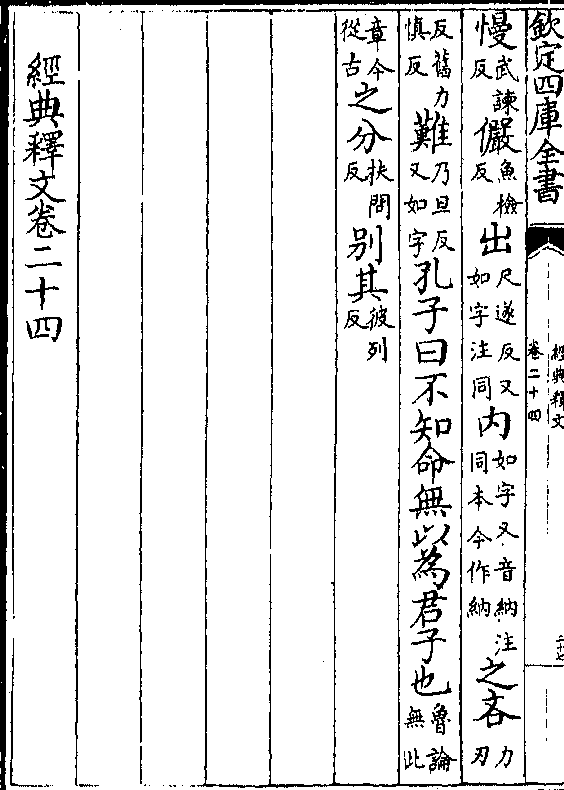 欽定四庫全書
經典釋文
卷二十四
慢武諫反儼魚檢反出尺遂反又如字注同内如字又音納注同本今作納之吝力刃
反舊力慎反難乃旦反又如字孔子曰不知命無以為君子也魯論無此
章今從古之分扶問反别其彼列反
經典釋文卷二十四